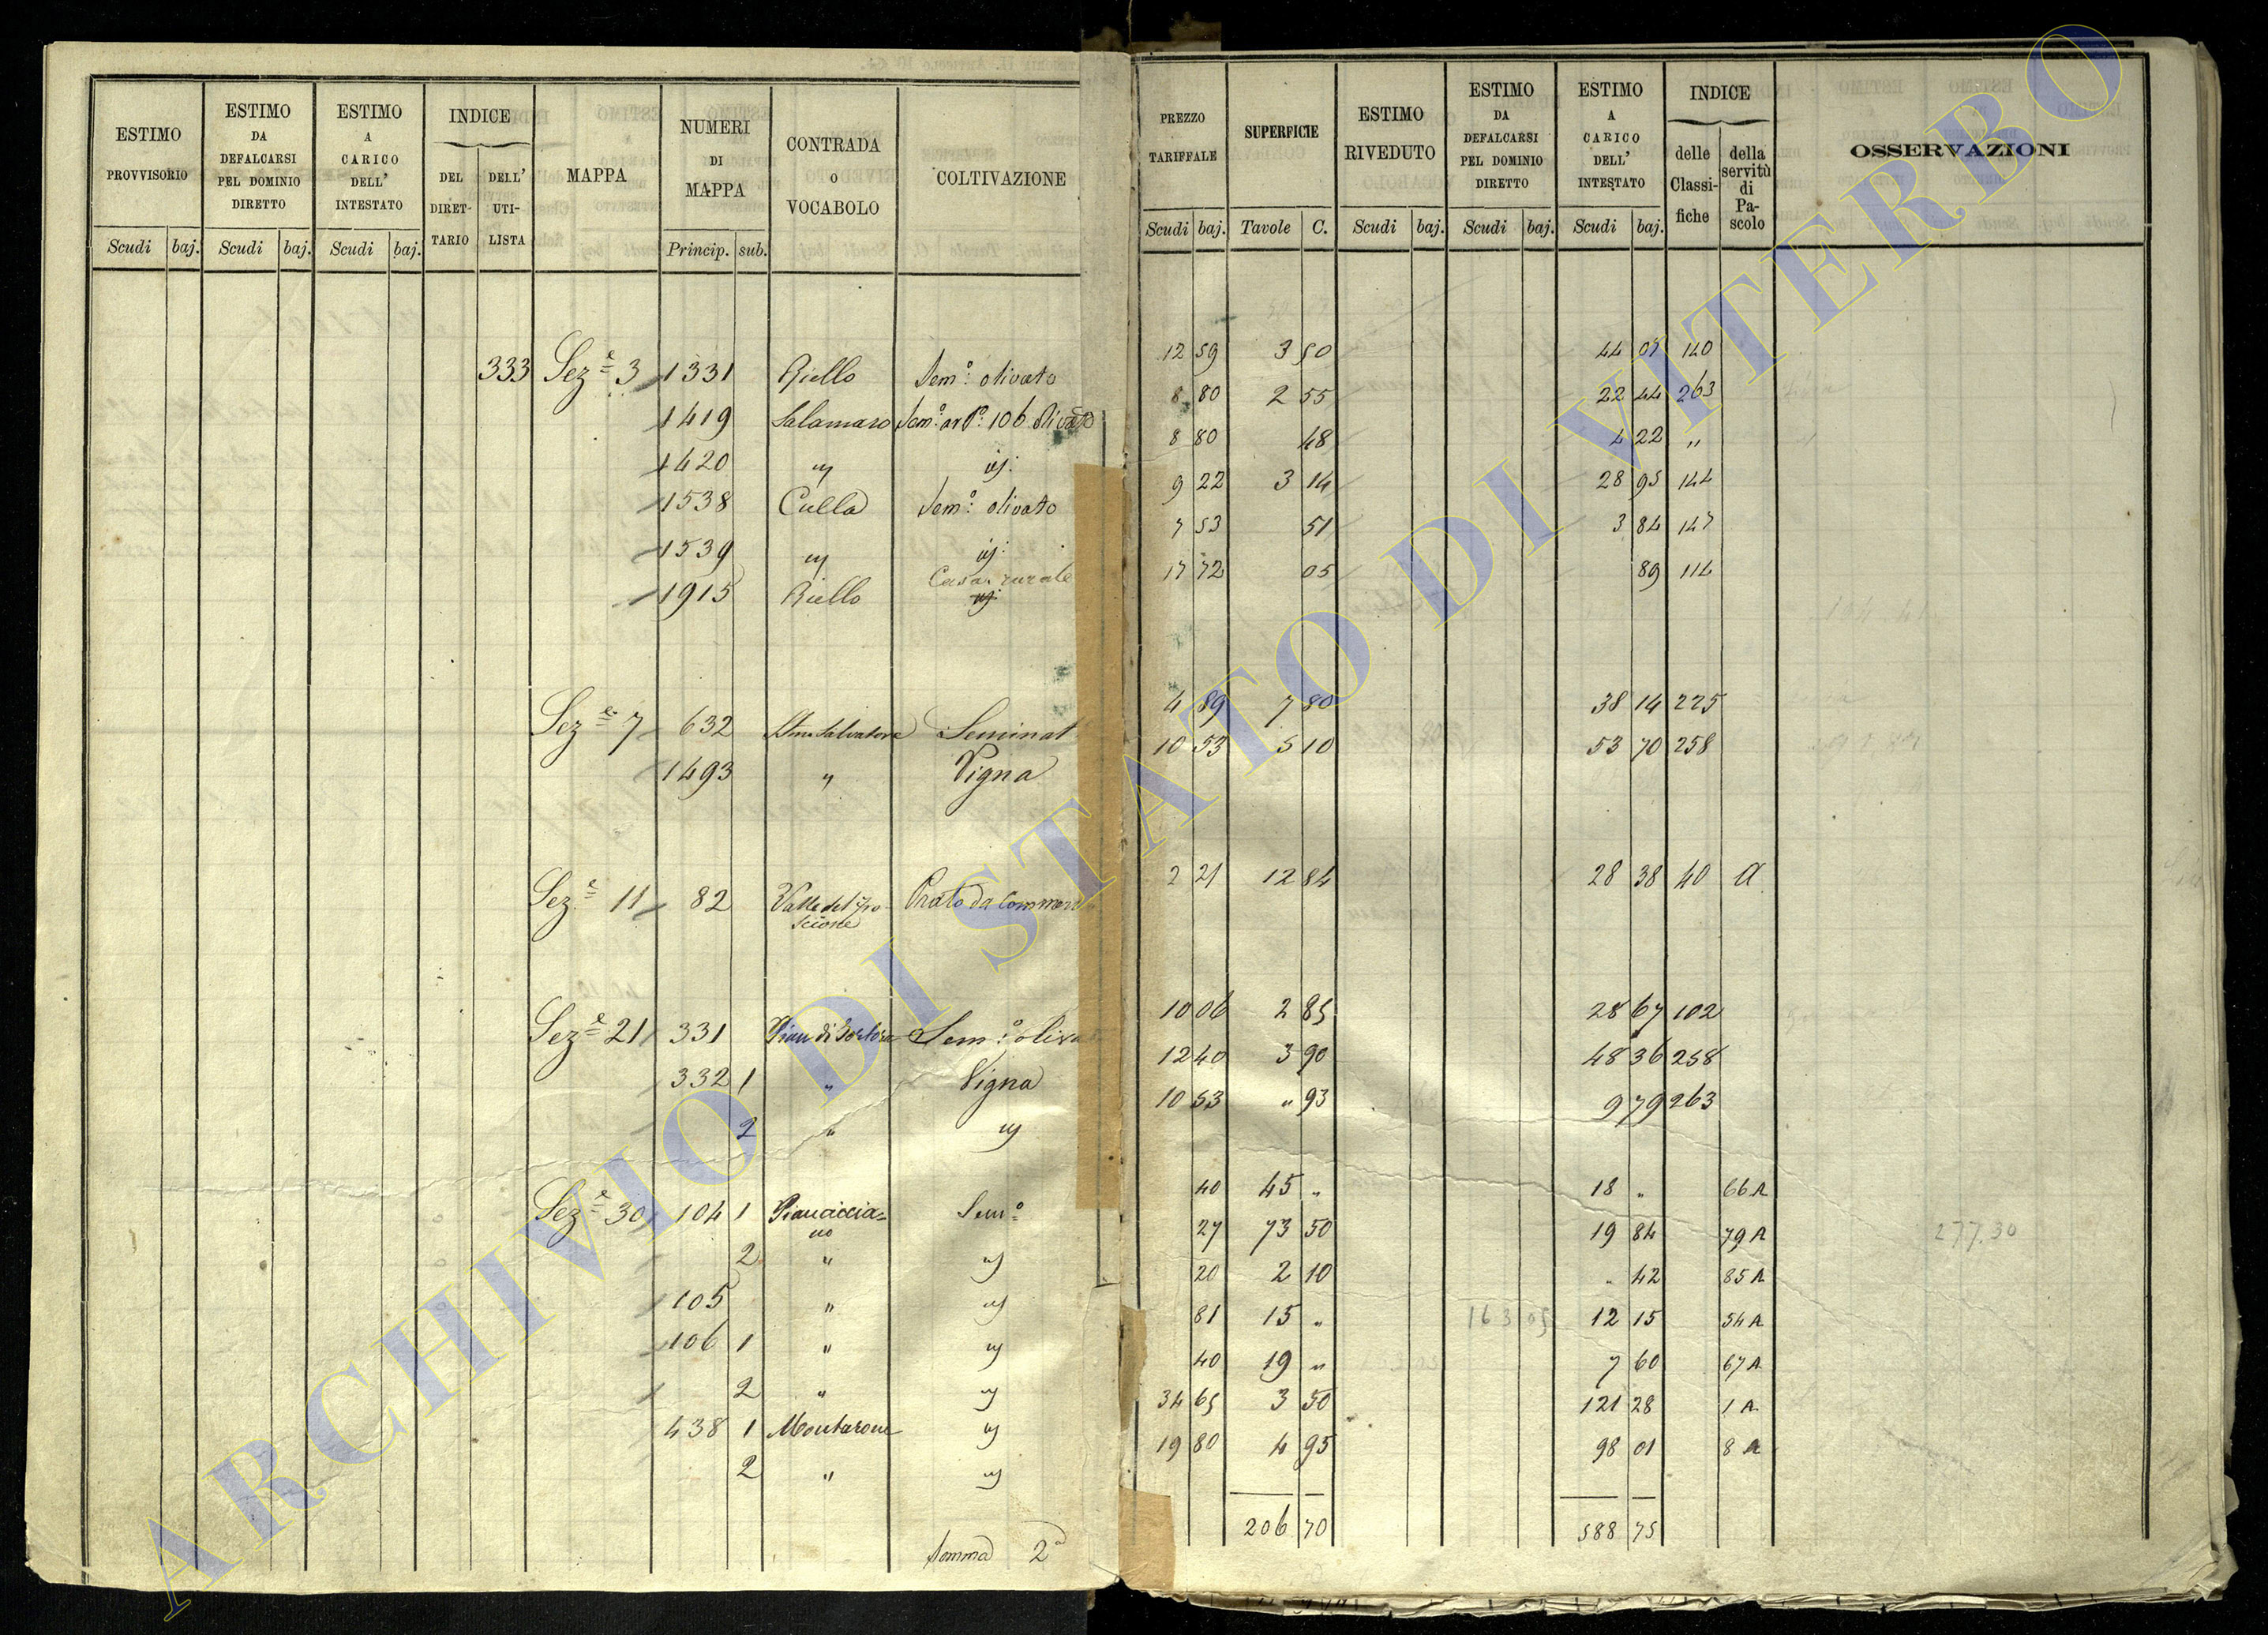 ESTIMO PROVVISORIO | ESTIMO DA DEFALCARSI PEL DOMINIO DIRETTO | ESTIMO A CARICO DELL' INTESTATO | INDICE | MAPPA | NUMERI DI MAPPA | CONTRADA O VOCABOLO | COLTIVAZIONE | PREZZO TARIFFALE | SUPERFICIE | ESTIMO RIVEDUTO | ESTIMO DA DEFALCARSI PEL DOMINIO DIRETTO | ESTIMO A CARICO DELL' INTESTATO | INDICE | OSSERVAZIONI
DEL DIRET-TARIO | DELL' UTI-LISTA | delle Classi-fiche | della servitù di Pa-scolo
Scudi | baj. | Scudi | baj. | Scudi | baj. | Princip. | sub. | Scudi | baj. | Tavole | C. | Scudi | baj. | Scudi | baj. | Scudi | baj.
333 Sez.e 3 1331 Riello Sem.o olivato 12 59 3 50 44 07 140
1419 Salamaro Sem.o ar P.o 106 olivato 8 80 2 55 22 44 263
1420 " id. 8 80 48 4 22 "
1538 Culla Sem.o olivato 9 22 3 14 28 95 144
1539 " id. 7 53 51 3 84 147
1915 Riello Casa rurale 17 72 05 89 114
Sez.e 7 632 Salvatore Seminat 4 89 7 80 38 14 225
1493 " Vigna 10 53 5 10 53 70 258
Sez.e 11 82 Valle del Prato da 2 21 12 84 28 38 40 A
scione
Sez.e 21 331 Pian di Sem.o oliva 10 06 2 85 28 67 102
332 1 " Vigna 12 40 3 90 48 36 258
2 " id 10 53 " 93 9 79 263
Sez.e 30 104 1 Pianaccia= Sem.o 40 45 " 18 " 66 A
no
2 " id 27 73 50 19 84 79 A 277.30
105 " id 20 2 10 " 42 85 A
106 1 " id 81 15 " 163 05 12 15 54 A
2 " id 40 19 " 7 60 67 A
438 1 Montarone id 34 65 3 50 121 28 1 A
2 " id 19 80 4 95 98 01 8 A
Somma 2a 206 70 588 75
ARCHIVIO DI STATO DI VITERBO